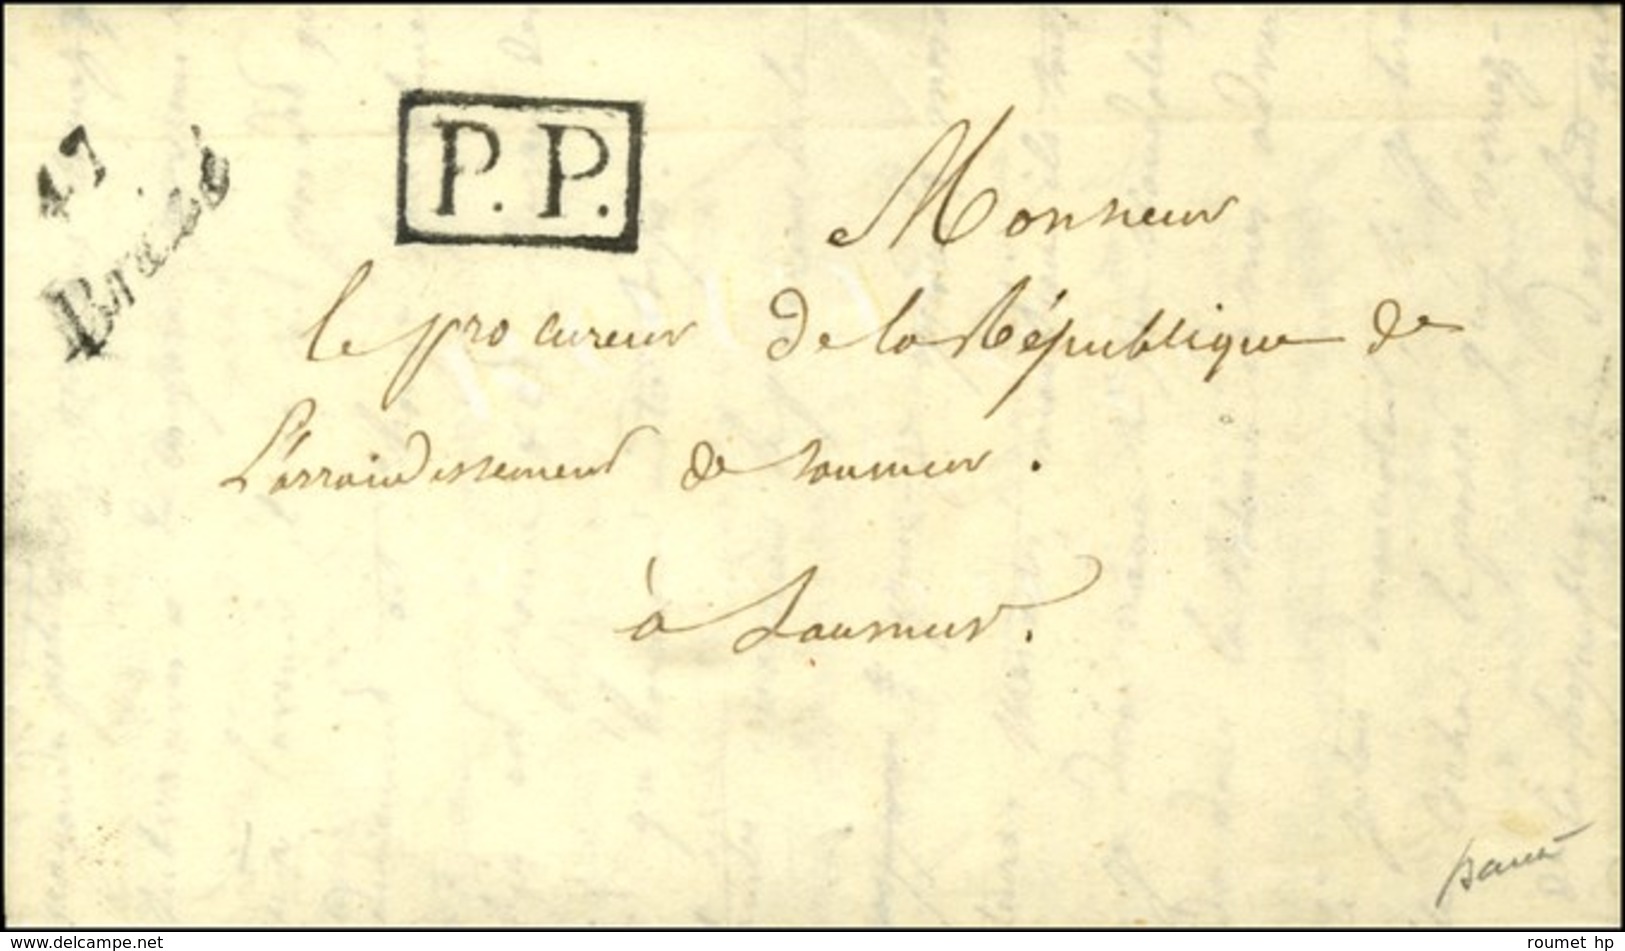 47
Brézé
P.P.
Monsieur
le procureur de la République de
L'arrondissement de Saumur.
à Saumur.
www.delcampe.net
roumet hp